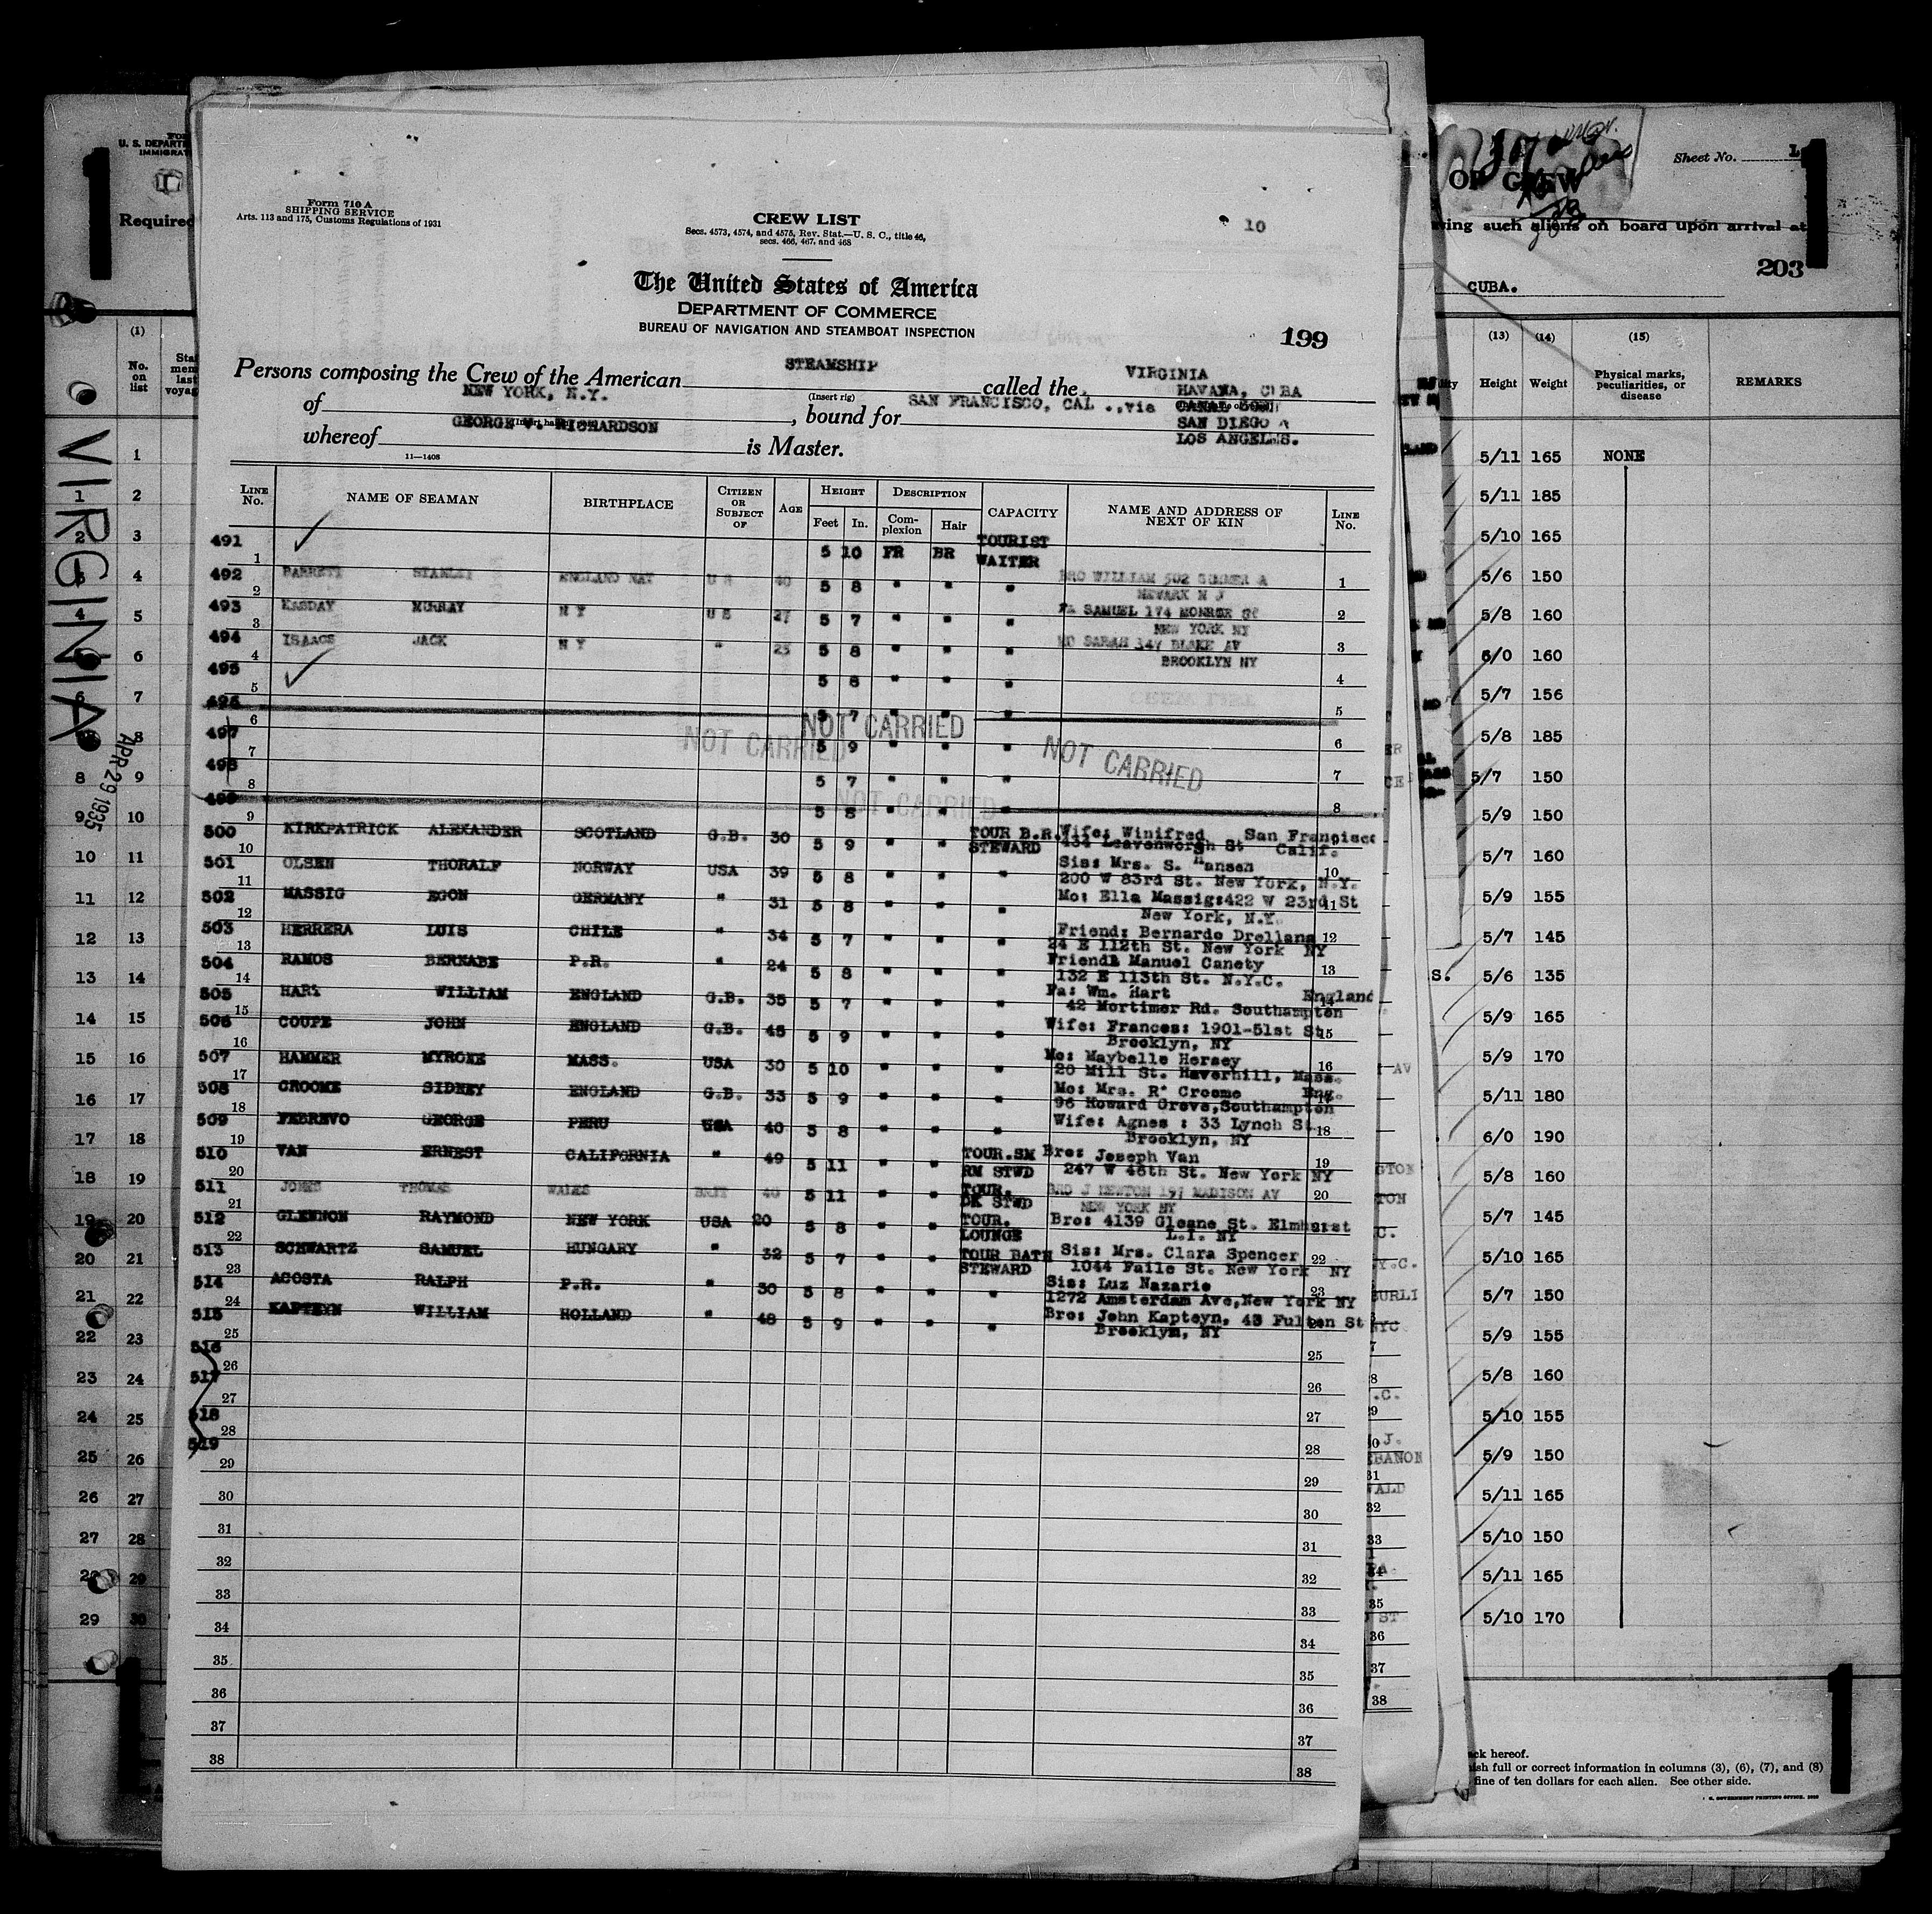 Form 710 A
SHIPPING SERVICE
Arts. 113 and 175, Customs Regulations of 1931
CREW LIST
Secs. 4573, 4574, and 4575, Rev. Stat.—U. S. C., title 46,
secs. 466, 467, and 468
10
The United States of America
DEPARTMENT OF COMMERCE
BUREAU OF NAVIGATION AND STEAMBOAT INSPECTION
199
Persons composing the Crew of the American STEAMSHIP called the VIRGINIA
(Insert rig)
of NEW YORK, N.Y., bound for SAN FRANCISCO, CAL., via HAVANA, CUBA
SAN DIEGO
whereof GEORGE V. RICHARDSON is Master. LOS ANGELES.
11—1408
LINE No. NAME OF SEAMAN BIRTHPLACE CITIZEN OR SUBJECT OF AGE HEIGHT Feet In. DESCRIPTION Complexion Hair CAPACITY NAME AND ADDRESS OF NEXT OF KIN LINE No.
491 1 5 10 FR BR TOURIST WAITER 1
492 2 BARRETT STANLEY ENGLAND NAT U S 40 5 8 " " " BRO WILLIAM 502 A 2
NEWARK N J
493 3 KASDAY MURRAY N Y U S 27 5 7 " " " FA SAMUEL 174 MONROE ST 3
NEW YORK NY
494 4 ISAACS JACK N Y " 25 5 8 " " " MO SARAH 347 BLAKE AV 4
BROOKLYN NY
495 5 5 8 " " " 5
496 6 5 7 " " " 6
NOT CARRIED
NOT CARRIED
NOT CARRIED
497 7 5 9 " " " 7
498 8 5 7 " " " 8
NOT CARRIED
499 9 5 8 " " "
500 10 KIRKPATRICK ALEXANDER SCOTLAND G.B. 30 5 9 " " TOUR B.R. STEWARD Wife: Winifred San Francisco 10
434 Leavenworth St Calif.
501 11 OLSEN THORALF NORWAY USA 39 5 8 " " " Sis: Mrs. S. Hansen 11
200 W 83rd St. New York, N.Y.
502 12 MASSIG EGON GERMANY " 31 5 8 " " " Mo: Ella Massig:422 W 23rd St 12
New York, N.Y.
503 13 HERRERA LUIS CHILE " 34 5 7 " " " Friend: Bernardo Drellana 13
24 E 112th St. New York NY
504 14 RAMOS BERNABE P.R. " 24 5 8 " " " Friend: Manuel Canety 14
132 E 113th St. N.Y.C.
505 15 HART WILLIAM ENGLAND G.B. 35 5 7 " " " Fa: Wm. Hart England 15
42 Mortimer Rd. Southampton
506 16 COUPE JOHN ENGLAND G.B. 45 5 9 " " " Wife: Frances: 1901-51st St 16
Brooklyn, NY
507 17 HAMMER MYRONE MASS. USA 30 5 10 " " " Mo: Maybelle Hersey 17
20 Mill St. Haverhill, Mass.
508 18 CROOME SIDNEY ENGLAND G.B. 33 5 9 " " " Mo: Mrs. R. Croome Eng. 18
96 Howard Grove, Southampton
509 19 FEBREVO GEORGE PERU USA 40 5 8 " " " Wife: Agnes : 33 Lynch St 19
Brooklyn, NY
510 20 VAN ERNEST CALIFORNIA " 49 5 11 " " TOUR.SM RM STWD Bro: Joseph Van 20
247 W 46th St. New York NY
511 21 JONES THOMAS WALES BRIT 40 5 11 " " TOUR. DK STWD BRO J NEWTON 197 MADISON AV
NEW YORK NY
512 22 GLENNON RAYMOND NEW YORK USA 20 5 8 " " TOUR. LOUNGE Bro: 4139 Gleane St. Elmhurst 22
L.I. NY
513 23 SCHWARTZ SAMUEL HUNGARY " 32 5 7 " " TOUR BATH STEWARD Sis: Mrs. Clara Spencer 23
1044 Faile St. New York NY
514 24 ACOSTA RALPH P.R. " 30 5 8 " " " Sis: Luz Nazario
1272 Amsterdam Ave, New York NY
515 25 KAPTEYN WILLIAM HOLLAND " 48 5 9 " " " Bro: John Kapteyn, 43 Fulton St 25
Brooklyn, NY
516 26 26
517 27 27
518 28 28
519
29 29
30 30
31 31
32 32
33 33
34 34
35 35
36 36
37 37
38 38
U. S. DEPARTM
IMMIGRAT
Required
VIRGINIA
APR 29 1935
(1)
No. on list
OF CREW
Sheet No. 1
ving such aliens on board upon arrival at
203
CUBA.
(13) (14) (15)
Height Weight Physical marks, peculiarities, or disease REMARKS
5/11 165 NONE
5/11 185
5/10 165
5/6 150
5/8 160
6/0 160
5/7 156
5/8 185
5/7 150
5/9 150
5/7 160
5/9 155
5/7 145
5/6 135
5/9 165
5/9 170
5/11 180
6/0 190
5/8 160
5/7 145
5/10 165
5/7 150
5/9 155
5/8 160
5/10 155
5/9 150
5/11 165
5/10 150
5/11 165
5/10 170
ck hereof.
ish full or correct information in columns (3), (6), (7), and (8)
fine of ten dollars for each alien. See other side.